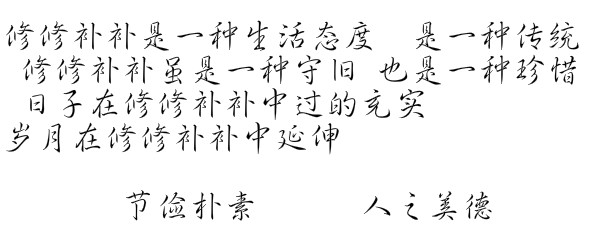 修修补补是一种生活态度 是一种传统
修修补补虽是一种守旧 也是一种珍惜
日子在修修补补中过的充实
岁月在修修补补中延伸
节俭朴素 人之美德